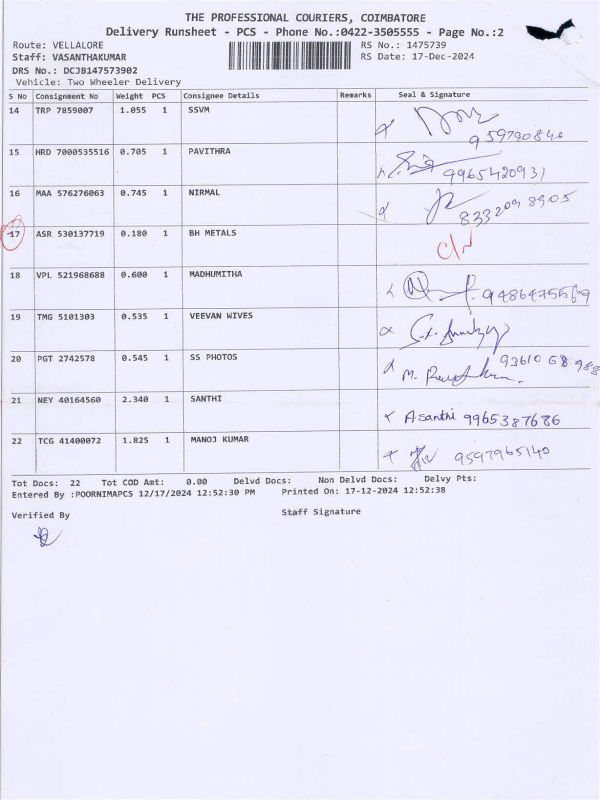 THE PROFESSIONAL COURIERS, COIMBATORE
Delivery Runsheet - PCS - Phone No.:0422-3505555 - Page No.:2
Route: VELLALORE RS No.: 1475739
Staff: VASANTHAKUMAR RS Date: 17-Dec-2024
DRS No.: DCJB147573902
Vehicle: Two Wheeler Delivery
S No Consignment No Weight PCS Consignee Details Remarks Seal & Signature
14 TRP 7859007 1.055 1 SSVM
15 HRD 7000535516 0.705 1 PAVITHRA 9965420931
16 MAA 576276063 0.745 1 NIRMAL 8332098905
17 ASR 530137719 0.180 1 BH METALS
18 VPL 521968688 0.600 1 MADHUMITHA
19 TMG 5101303 0.535 1 VEEVAN WIVES
20 PGT 2742578 0.545 1 SS PHOTOS
21 NEY 40164560 2.340 1 SANTHI Asanthi 9965387686
22 TCG 41400072 1.825 1 MANOJ KUMAR 9597965140
Tot Docs: 22 Tot COD Amt: 0.00 Delvd Docs: Non Delvd Docs: Delvy Pts:
Entered By :POORNIMAPCS 12/17/2024 12:52:30 PM Printed On: 17-12-2024 12:52:38
Verified By Staff Signature